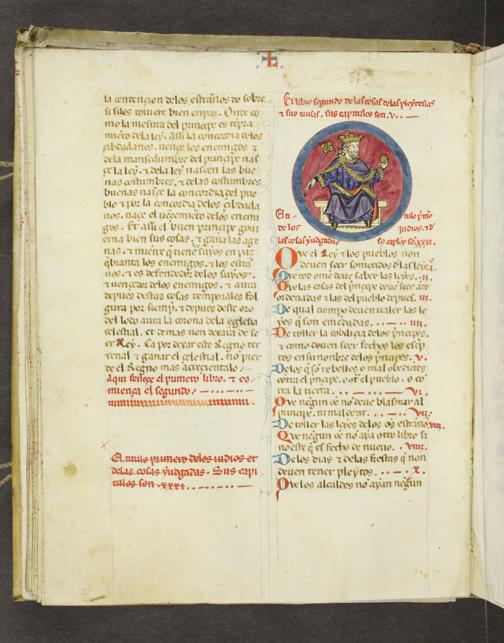 L
la contençion delos estraños de sobre
si si les toviere bien enpar. Onde co
mo la mesura del prinçipe es tenpra
miento dela ley. Assi la concordia delos
çibdadanos. uençe los enemigos. &
dela mansedumbre del prinçipe nas
çe la ley. & dela ley nasçen las bue
nas costumbres. & delas costumbres
buenas nasçe la concordia del pue
blo & por la concordia delos çibdada
nos. naçe el uençemiento delos enemi
gos. Et assi el buen prinçipe gouer
na bien sus cosas. & gana las age
nas. & mientre
quebranta los enemigos. & los estra
nos. & es defendedor delos suyos.
& uençedor delos enemigos. & aura
depues destas cosas tenporales fol
gura por sienpre. & depues deste oro
del lodo aura la corona dela eglesia
çelestial. et demas non dexara de se
er Rey. Ca por dexar este Regno ter
renal & ganar el çelestial. no pier
de el Regno mas acreçentalo.
Aqui feneçe el primero libro. & co
miença el segundo.
El titulo primero delos iudios et
delas cosas yudgadas. Sus capi
tulos son .xxxi.
El libro segundo de las cosas delas pleytesias
& sus titulos. sus capitulos son .v.
El ti tulo primero
de los iudios. & de
las cosas yudgadas so capitulos .xxxi.
Que el Rey & los pueblos non
deuen seer sometidos a las leyes .i.
Que todo omne deue saber las leyes. .ii.
Que las cosas del prinçipe deue seer ante
ordenadas & las del pueblo depues. iii.
De qual tienpo deuen ualer las le
yes que son emendadas. iiii.
De toller la cobdiçia delos prinçipes.
& como deuen seer fechos los escrip
tos en su nonbre delos prinçipes. v.
Delos que son rebelles o mal obedientes
contra el prinçipe. o contra el pueblo. o con
tra la tierra. vi.
Que negun omne no deue blasmar al
prinçipe. ni maldezir. vii.
De toller las leyes delos omnes estraños viii.
Que negun omne no aya otro libro si
no este que es fecho de nueuo. viiii.
De los dias & delas fiestas que non
deuen tener pleytos. x.
Que los alcaldes no ayan negun